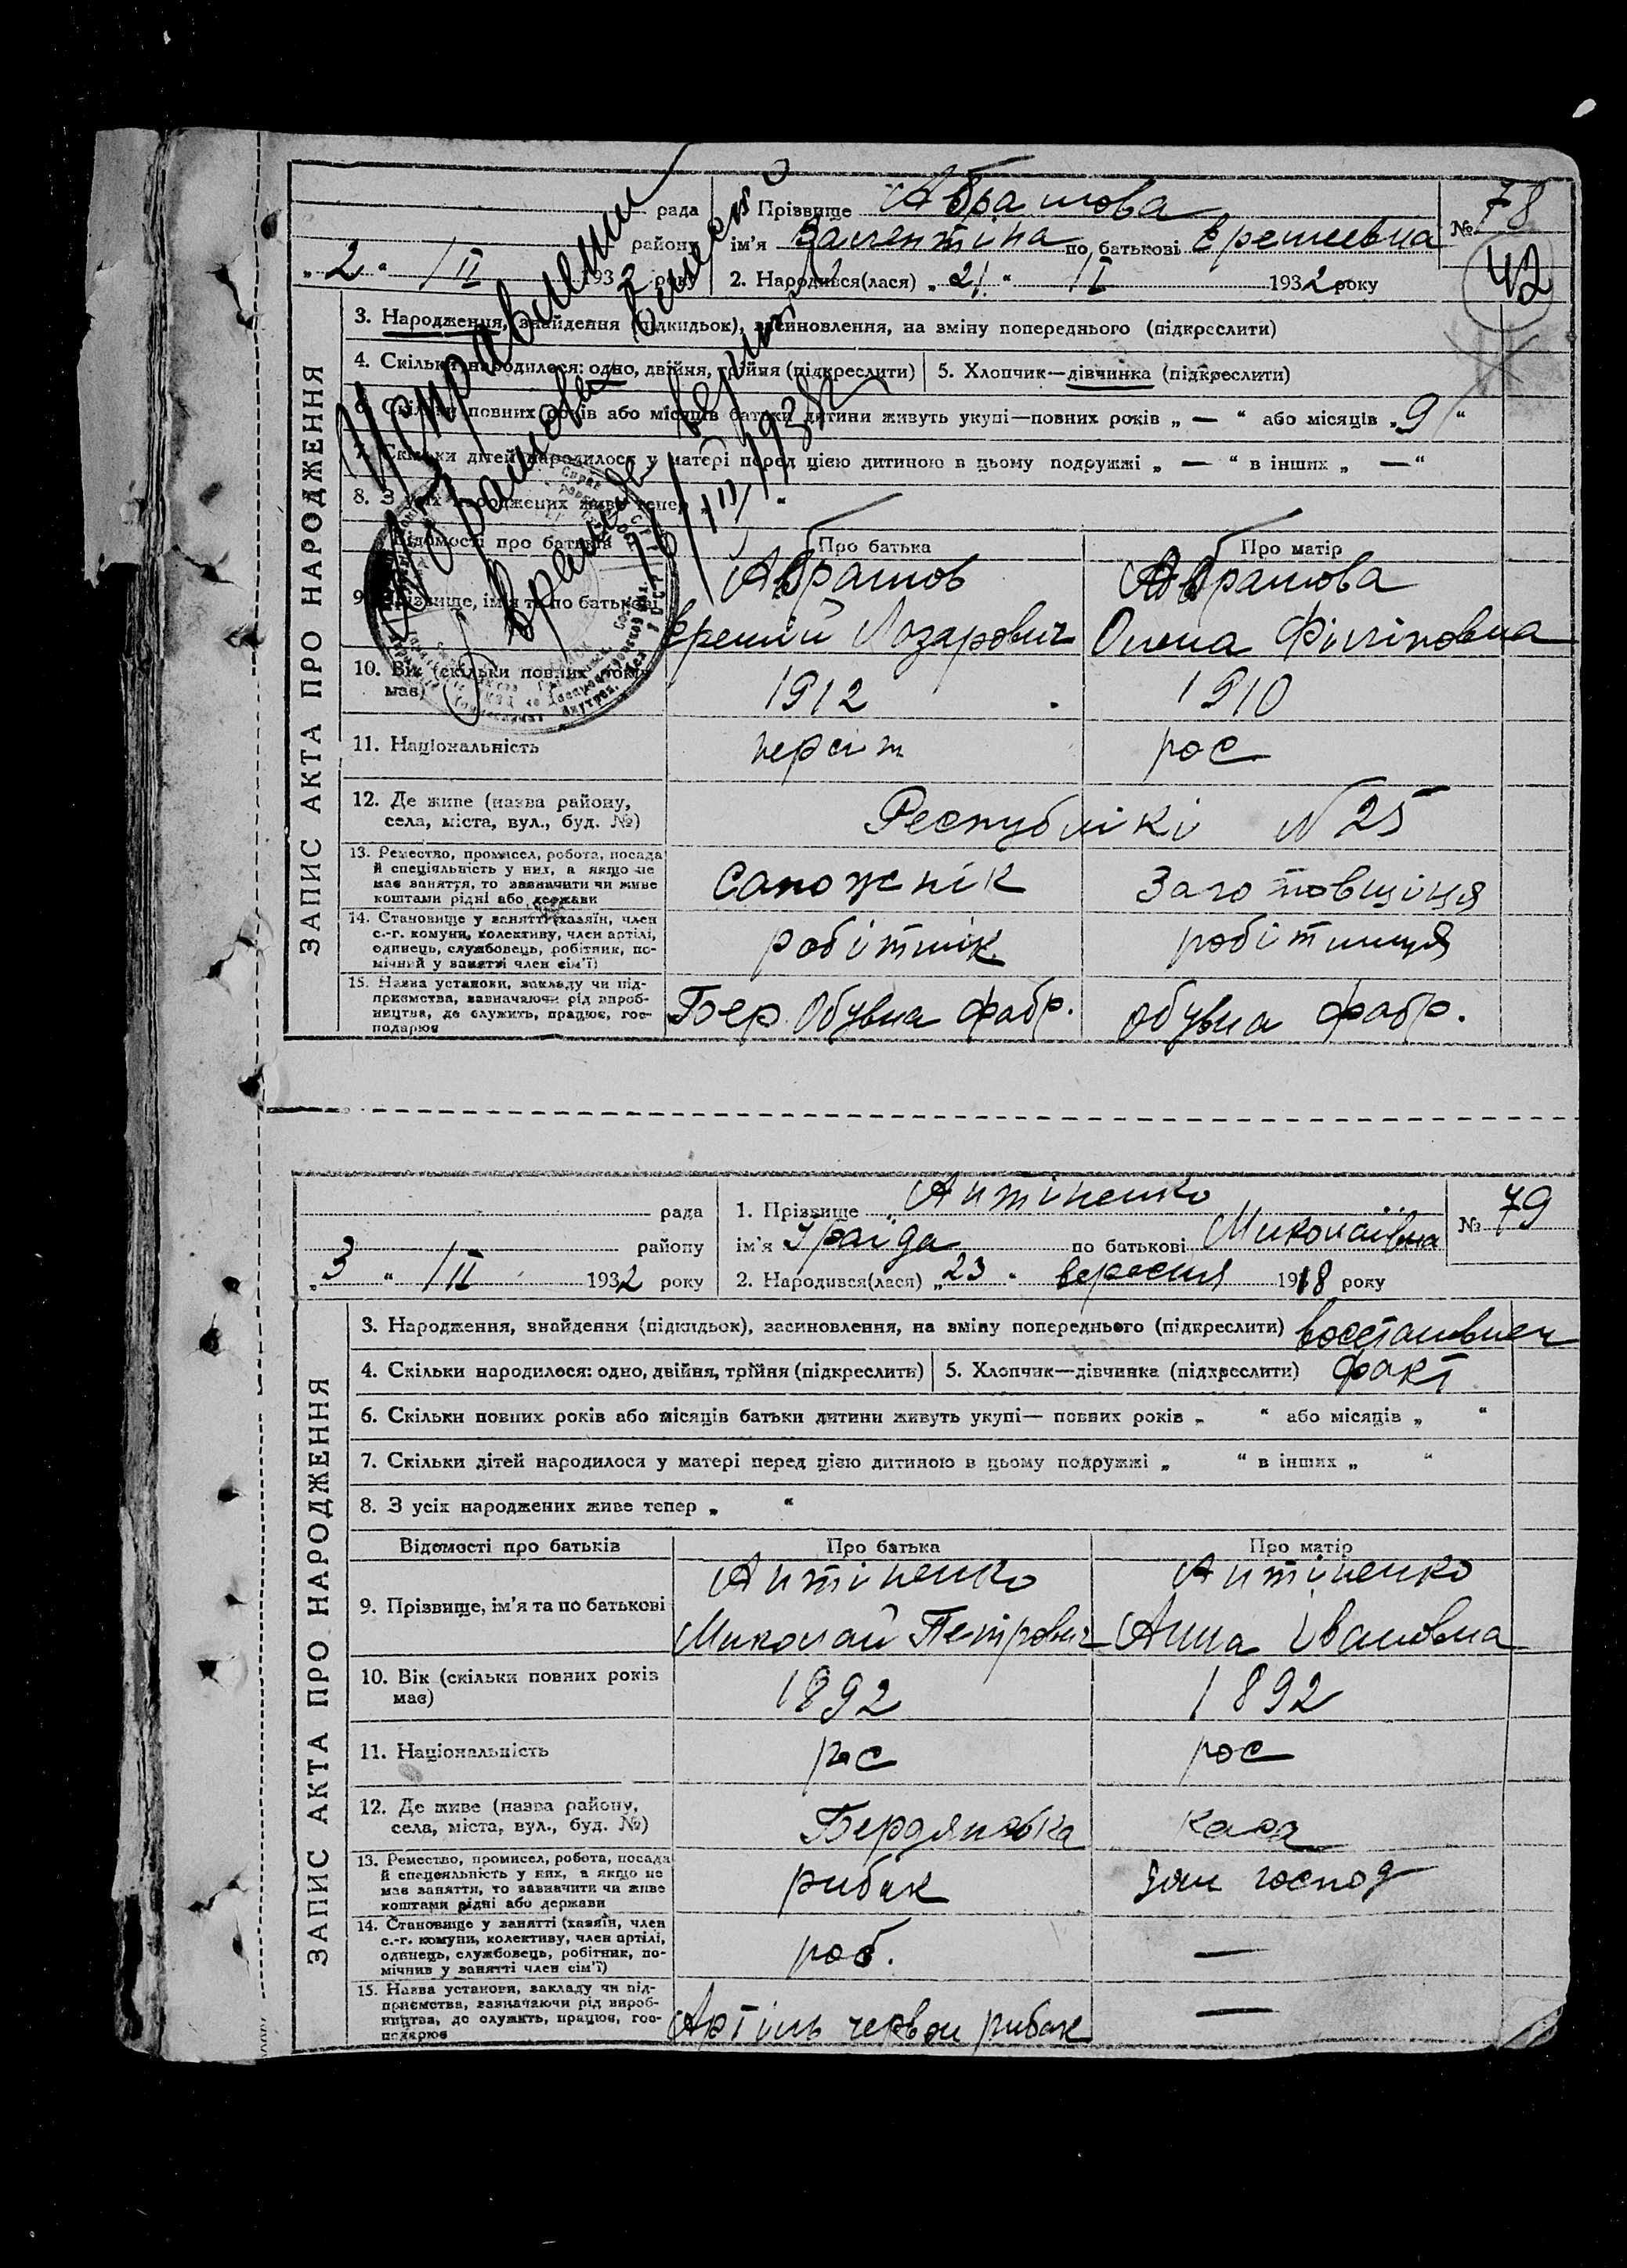 рада
району
„2“ /II 1932 року
Прізвище Абрамова
ім'я Валентіна по батькові Єремеевна
2. Народився(лася) „21“ /I 1932 року
№ 78
42
ЗАПИС АКТА ПРО НАРОДЖЕННЯ
3. Народження, знайдення (підкидьок), засиновлення, на зміну попереднього (підкреслити)
4. Скільки народилося: одно, двійня, трійня (підкреслити)
5. Хлопчик—дівчинка (підкреслити)
6. Скільки повних років або місяців батьки дитини живуть укупі—повних років „ — “ або місяців „9“
7. Скільки дітей народилося у матері перед цією дитиною в цьому подружжі „ — “ в інших „ — “
8. З усіх народжених живе тепер „ “
Исправленный
Абрамова
верить
/III 1938
Відомості про батьків
Про батька
Про матір
9. Прізвище, ім'я та по батькові
Абрамов
Єремій Лазарович
Абрамова
Олена Філіповна
10. Вік (скільки повних років має)
1912
1910
11. Національність
персіт
рос
12. Де живе (назва району,
села, міста, вул., буд. №)
Республікі N 25
13. Ремество, промисел, робота, посада
й спеціяльність у них, а якщо не
має заняття, то зазначити чи живе
коштами рідні або держави
Сапожнік
Заготовщіця
14. Становище у занятті (хазяїн, член
с.-г. комуни, колективу, член артілі,
одинець, службовець, робітник, по-
мічний у занятті член сім'ї)
робітнік
робітниця
15. Назва установи, закладу чи під-
приємства, зазначаючи рід вироб-
ництва, де служить, працює, гос-
подарює
Бер Обувна фабр.
Обувна фабр.
рада
району
„3“ /II 1932 року
1. Прізвище Антіпенко
ім'я Іраїда по батькові Миколаївна
2. Народився(лася) „23“ вересня 1918 року
№ 79
ЗАПИС АКТА ПРО НАРОДЖЕННЯ
3. Народження, знайдення (підкидьок), засиновлення, на зміну попереднього (підкреслити) восстановлен
4. Скільки народилося: одно, двійня, трійня (підкреслити)
5. Хлопчик—дівчинка (підкреслити) факт
6. Скільки повних років або місяців батьки дитини живуть укупі— повних років „ “ або місяців „ “
7. Скільки дітей народилося у матері перед цією дитиною в цьому подружжі „ “ в інших „ “
8. З усіх народжених живе тепер „ “
Відомості про батьків
Про батька
Про матір
9. Прізвище, ім'я та по батькові
Антіпенко
Миколай Петрович
Антіпенко
Анна Івановна
10. Вік (скільки повних років
має)
1892
1892
11. Національність
рос
рос
12. Де живе (назва району,
села, міста, вул., буд. №)
Бердянська коса
13. Ремество, промисел, робота, посада
й спецеяльність у них, а якщо не
має заняття, то зазначити чи живе
коштами рідні або держави
рибак
дом господ
14. Становище у занятті (хазяїн, член
с.-г. комуни, колективу, член артілі,
одинець, службовець, робітник, по-
мічник у занятті член сім'ї)
роб.
—
15. Назва установи, закладу чи під-
приємства, зазначаючи рід вироб-
ництва, де служить, працює, гос-
подарює
Артіль червон рибак
—